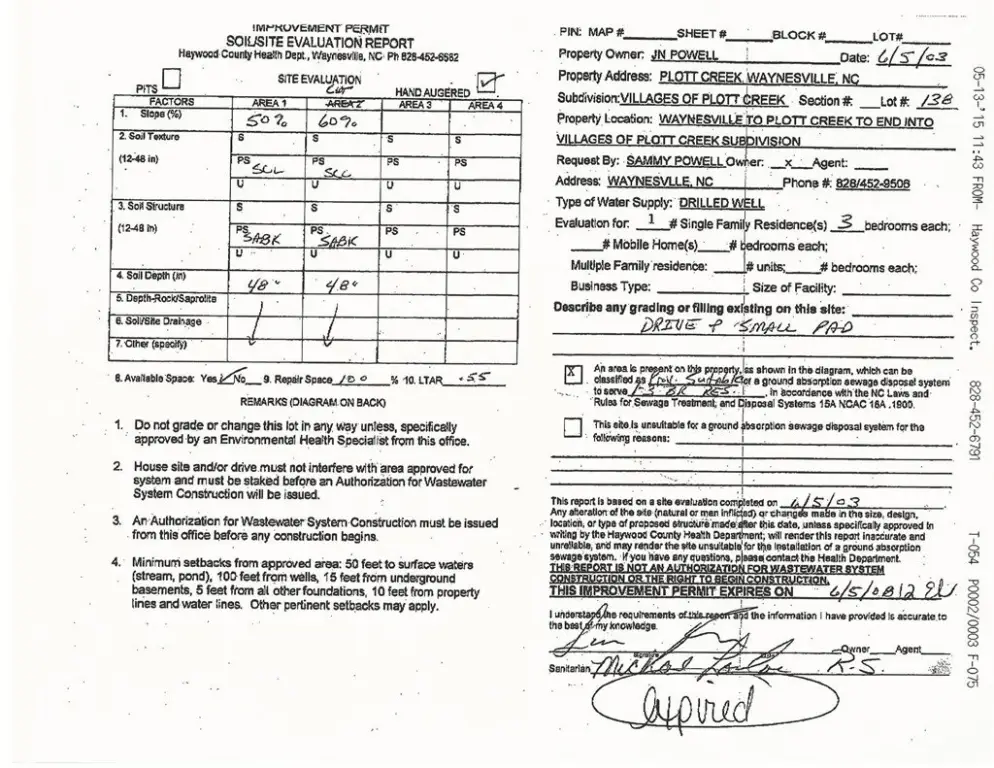 IMPROVEMENT PERMIT
SOIL/SITE EVALUATION REPORT
Haywood County Health Dept., Waynesville, NC Ph 828-452-6682
SITE EVALUATION
PITS HAND AUGERED
FACTORS AREA 1 AREA 2 AREA 3 AREA 4
Cut
1. Slope (%) 50% 60%
2. Soil Texture S S S S
(12-48 in) PS SCL PS SCL PS PS
U U U U
3. Soil Structure S S S S
(12-48 in) PS SABK PS SABK PS PS
U U U U
4. Soil Depth (in) 48" 48"
5. Depth-Rock/Saprolite
6. Soil/Site Drainage
7. Other (specify)
8. Available Space: Yes No 9. Repair Space 100 % 10. LTAR .55
REMARKS (DIAGRAM ON BACK)
1. Do not grade or change this lot in any way unless, specifically
approved by an Environmental Health Specialist from this office.
2. House site and/or drive must not interfere with area approved for
system and must be staked before an Authorization for Wastewater
System Construction will be issued.
3. An Authorization for Wastewater System Construction must be issued
from this office before any construction begins.
4. Minimum setbacks from approved area: 50 feet to surface waters
(stream, pond), 100 feet from wells, 15 feet from underground
basements, 5 feet from all other foundations, 10 feet from property
lines and water lines. Other pertinent setbacks may apply.
PIN: MAP # SHEET # BLOCK # LOT#
Property Owner: JN POWELL Date: 6/5/03
Property Address: PLOTT CREEK, WAYNESVILLE, NC
Subdivision: VILLAGES OF PLOTT CREEK Section #: Lot #: 138
Property Location: WAYNESVILLE TO PLOTT CREEK TO END INTO
VILLAGES OF PLOTT CREEK SUBDIVISION
Request By: SAMMY POWELL Owner: x Agent:
Address: WAYNESVLLE, NC Phone #: 828/452-9506
Type of Water Supply: DRILLED WELL
Evaluation for: 1 # Single Family Residence(s) 3 bedrooms each;
# Mobile Home(s) # bedrooms each;
Multiple Family residence: # units; # bedrooms each;
Business Type: Size of Facility:
Describe any grading or filling existing on this site:
DRIVE + SMALL PAD
X An area is present on this property, as shown in the diagram, which can be
classified as Prov. Suitable for a ground absorption sewage disposal system
to serve 1-3 BR RES. , in accordance with the NC Laws and
Rules for Sewage Treatment, and Disposal Systems 15A NCAC 18A .1900.
This site is unsuitable for a ground absorption sewage disposal system for the
following reasons:
This report is based on a site evaluation completed on 6/5/03
Any alteration of the site (natural or man inflicted) or changes made in the size, design,
location, or type of proposed structure made after this date, unless specifically approved in
writing by the Haywood County Health Department; will render this report inaccurate and
unreliable, and may render the site unsuitable for the installation of a ground absorption
sewage system. If you have any questions, please contact the Health Department.
THIS REPORT IS NOT AN AUTHORIZATION FOR WASTEWATER SYSTEM
CONSTRUCTION OR THE RIGHT TO BEGIN CONSTRUCTION.
THIS IMPROVEMENT PERMIT EXPIRES ON 6/5/08
I understand the requirements of this report and the information I have provided is accurate to
the best of my knowledge.
Owner Agent
Sanitarian R.S.
expired
05-13-'15 11:43 FROM- Haywood Co Inspect. 828-452-6791 T-054 P0002/0003 F-075